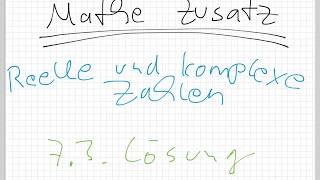 Mathe Zusatz
Reelle und komplexe
Zahlen
7.3. Lösung